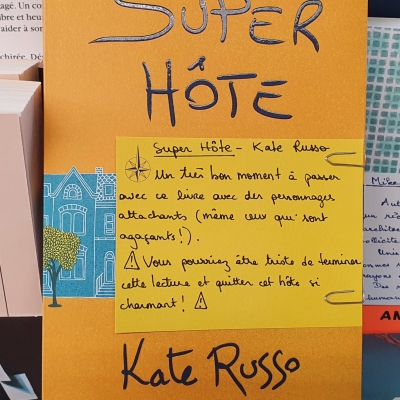 SUPER
HÔTE
Super Hôte - Kate Russo
Un très bon moment à passer
avec ce livre avec des personnages
attachants (même ceux qui sont
agaçants!).
⚠ Vous pourriez être triste de terminer
cette lecture et quitter cet hôte si
charmant! ⚠
Kate Russo